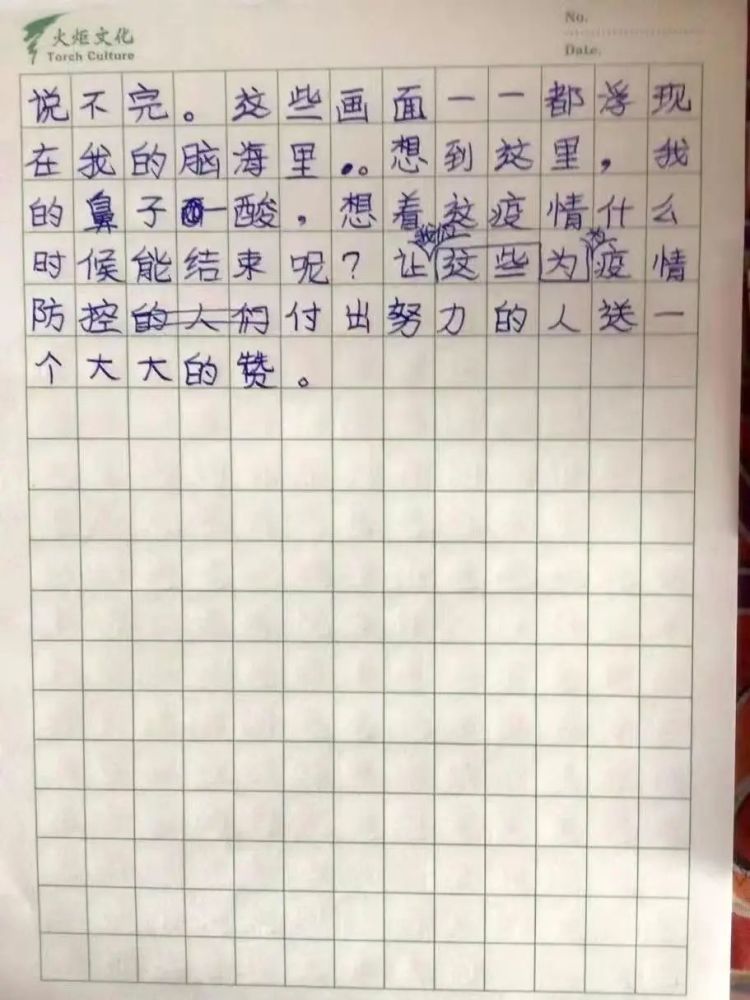 火炬文化
Torch Culture
No.
Date.
说不完。这些画面一一都浮现
在我的脑海里。想到这里，我
的鼻子一酸，想着这疫情什么
时候能结束呢？让我们这些为疫情
防控的人们付出努力的人送一
个大大的赞。